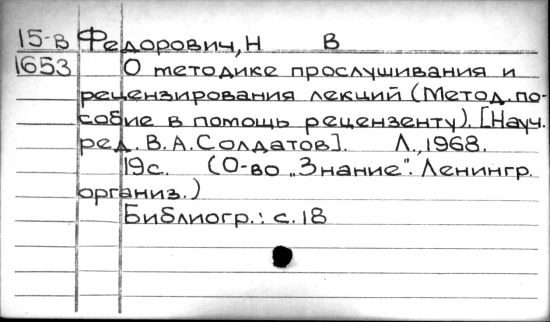 15-в Федорович, Н В
1653 О методике прослушивания и
рецензирования лекций (Метод. по-
собие в помощь рецензенту). [Науч.
ред. В. А. Солдатов]. Л., 1968.
19с. (О-во „Знание". Ленингр.
организ.)
Библиогр.: с. 18